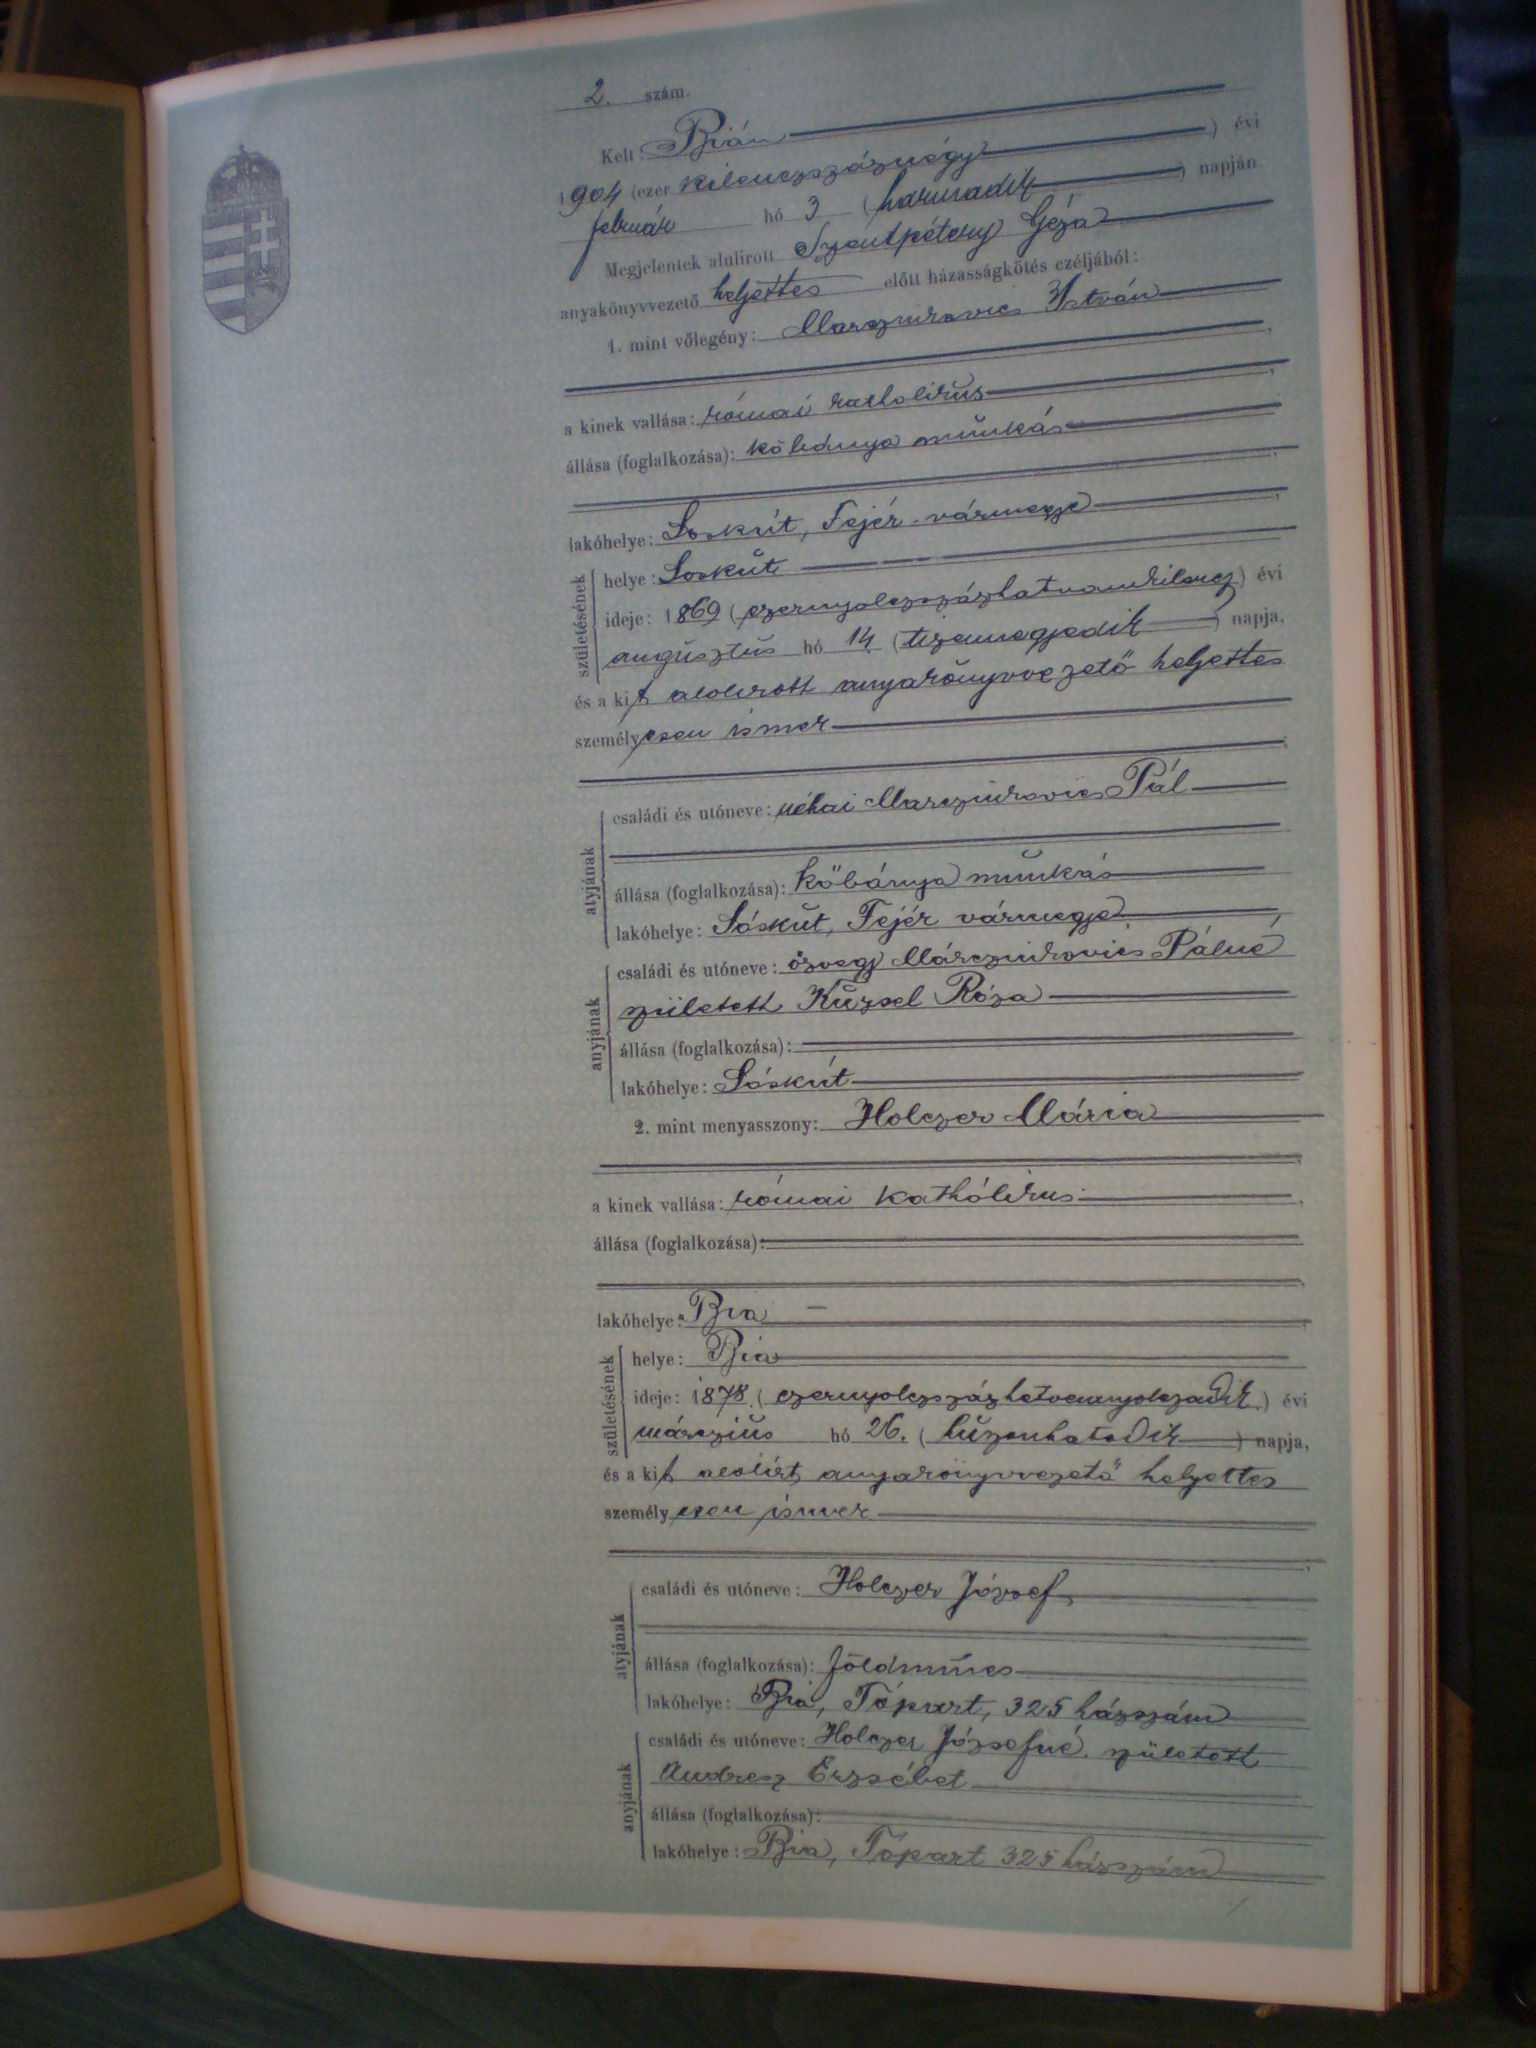 2. szám.
Kelt: Bián
1904 (ezer kilenczszáznégy) évi
február hó 3 (harmadik) napján
Megjelentek alulirott Szentpétery Géza
anyakönyvvezető helyettes előtt házasságkötés czéljából:
1. mint vőlegény: Marcznirovics István
a kinek vallása: római katholikus
állása (foglalkozása): kőbánya munkás
lakóhelye: Soskút, Fejér-vármegye
születésének
helye: Soskút
ideje: 1869 (ezernyolczszázhatvankilencz) évi
augusztus hó 14. (tizennegyedik) napja,
és a kit alolirott anyakönyvvezető helyettes
személyesen ismer
atyjának
családi és utóneve: néhai Marcznirovics Pál
állása (foglalkozása): kőbánya munkás
lakóhelye: Sóskút, Fejér vármegye
anyjának
családi és utóneve: özvegy Márcznirovics Pálné
született Kuzsel Róza
állása (foglalkozása):
lakóhelye: Sóskút
2. mint menyasszony: Holczer Mária
a kinek vallása: római kathólikus
állása (foglalkozása):
lakóhelye: Bia
születésének
helye: Bia
ideje: 1878. (ezernyolczszázhetvennyolczadik) évi
márczius hó 26. (huszonhatodik) napja,
és a kit alolírt anyakönyvvezető helyettes
személyesen ismer
atyjának
családi és utóneve: Holczer József
állása (foglalkozása): földmüves
lakóhelye: Bia, Tópart, 325 házszám
anyjának
családi és utóneve: Holczer Józsefné született
Andresz Erzsébet
állása (foglalkozása):
lakóhelye: Bia, Tópart 325 házszám